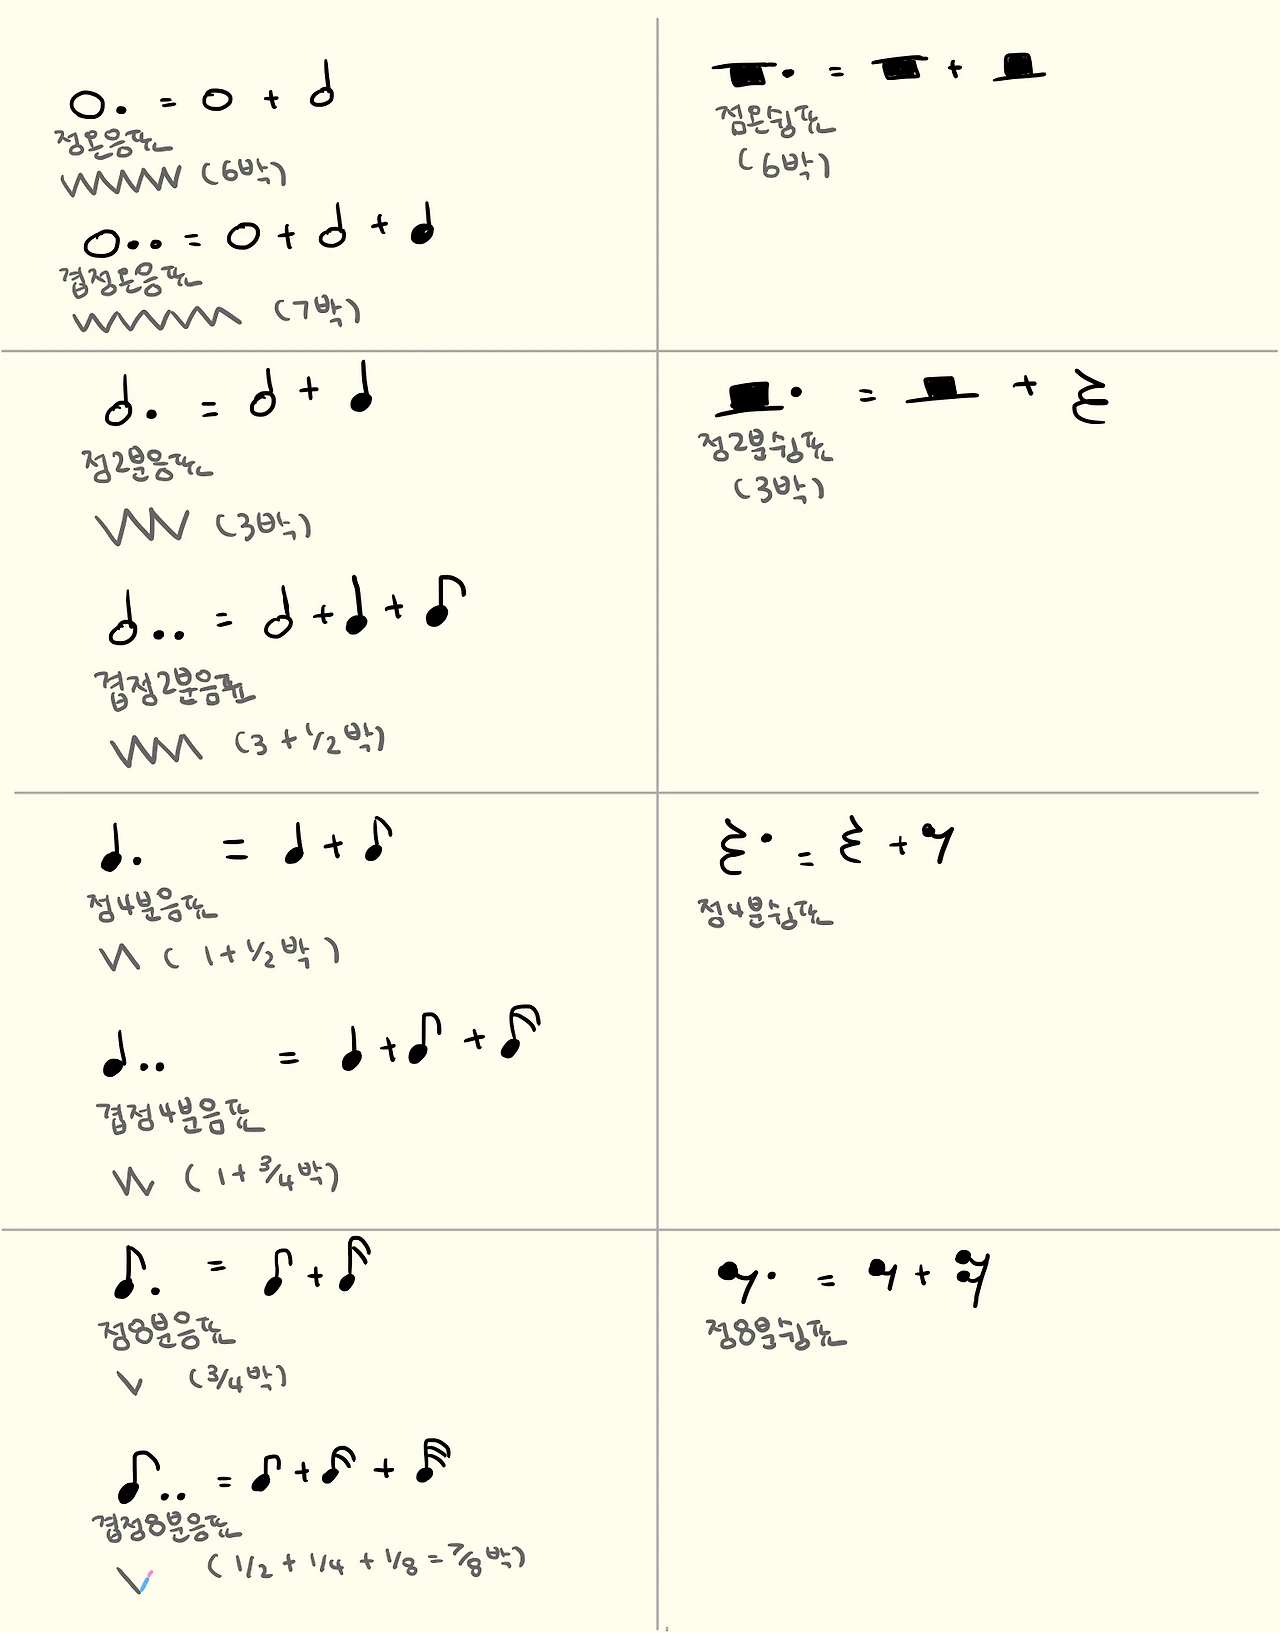 점온음표
(6박)
겹점온음표
(7박)
점2분음표
(3박)
겹점2분음표
(3 + 1/2박)
점4분음표
( 1 + 1/2 박 )
겹점4분음표
( 1 + 3/4박)
점8분음표
(3/4박)
겹점8분음표
( 1/2 + 1/4 + 1/8 = 7/8박)
점온쉼표
(6박)
점2분쉼표
(3박)
점4분쉼표
점8분쉼표